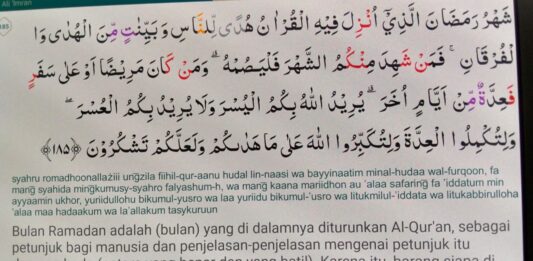 Ali 'Imran
شَهْرُ رَمَضَانَ الَّذِيْٓ اُنْزِلَ فِيْهِ الْقُرْاٰنُ هُدًى لِّلنَّاسِ وَبَيِّنٰتٍ مِّنَ الْهُدٰى وَا
لْفُرْقَانِۚ فَمَنْ شَهِدَ مِنْكُمُ الشَّهْرَ فَلْيَصُمْهُۗ وَمَنْ كَانَ مَرِيْضًا اَوْ عَلٰى سَفَرٍ
فَعِدَّةٌ مِّنْ اَيَّامٍ اُخَرَۗ يُرِيْدُ اللّٰهُ بِكُمُ الْيُسْرَ وَلَا يُرِيْدُ بِكُمُ الْعُسْرَۖ
وَلِتُكْمِلُوا الْعِدَّةَ وَلِتُكَبِّرُوا اللّٰهَ عَلٰى مَا هَدٰىكُمْ وَلَعَلَّكُمْ تَشْكُرُوْنَ ﴿١٨٥﴾
syahru romadhoonallaẓiii ungzila fiihil-qur-aanu hudal lin-naasi wa bayyinaatim minal-hudaa wal-furqoon, fa
mang syahida mingkumusy-syahro falyashum-h, wa mang kaana mariidhon au 'alaa safaring fa 'iddatum min
ayyaamin ukhor, yuriidullohu bikumul-yusro wa laa yuriidu bikumul-'usro wa litukmilul-'iddata wa litukabbirulloha
'alaa maa hadaakum wa la'allakum tasykuruun
Bulan Ramadan adalah (bulan) yang di dalamnya diturunkan Al-Qur'an, sebagai
petunjuk bagi manusia dan penjelasan-penjelasan mengenai petunjuk itu